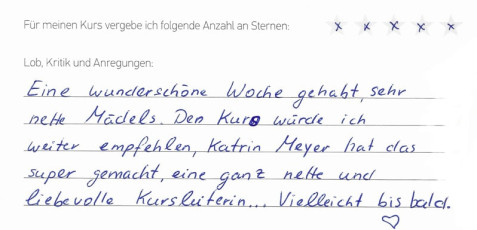 Für meinen Kurs vergebe ich folgende Anzahl an Sternen: x x x x x
Lob, Kritik und Anregungen:
Eine wunderschöne Woche gehabt, sehr
nette Mädels. Den Kurs würde ich
weiter empfehlen, Katrin Meyer hat das
super gemacht, eine ganz nette und
liebevolle Kursleiterin... Vielleicht bis bald.
♡